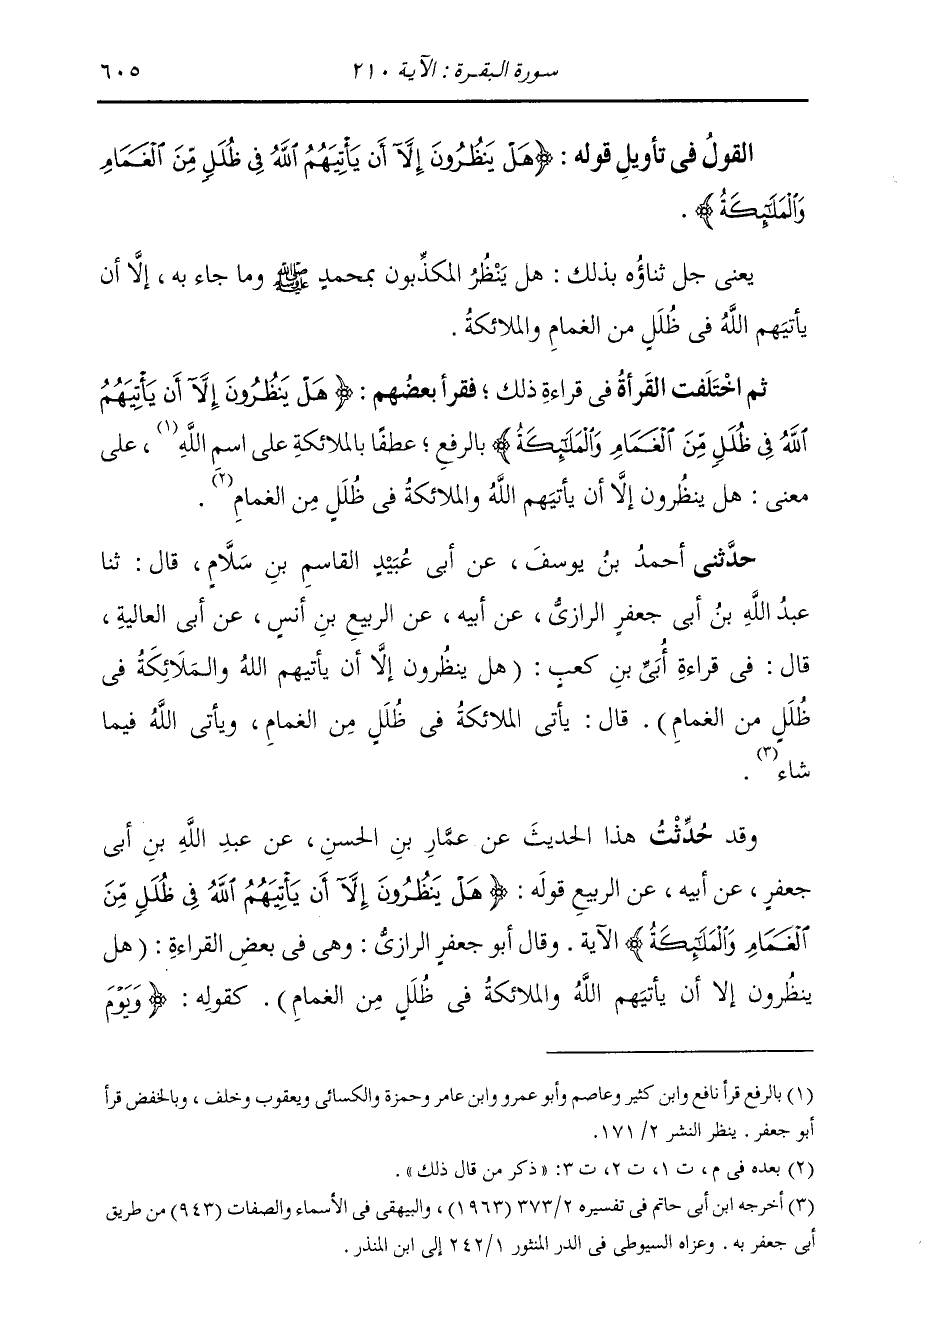 سورة البقرة : الآية ٢١٠ ٦٠٥
القولُ فى تأويلِ قوله : ﴿ هَلْ يَنظُرُونَ إِلَّآ أَن يَأْتِيَهُمُ ٱللَّهُ فِى ظُلَلٍ مِّنَ ٱلْغَمَامِ
وَٱلْمَلَٰٓئِكَةُ ﴾ .
يعنى جل ثناؤُه بذلك : هل يَنْظُرُ المكذِّبون بمحمدٍ ﷺ وما جاء به ، إلَّا أن
يأتيَهم اللَّهُ فى ظُلَلٍ من الغمامِ والملائكةُ .
ثم اخْتَلَفت القَرأةُ فى قراءةِ ذلك ؛ فقرأ بعضُهم : ﴿ هَلْ يَنظُرُونَ إِلَّآ أَن يَأْتِيَهُمُ
ٱللَّهُ فِى ظُلَلٍ مِّنَ ٱلْغَمَامِ وَٱلْمَلَٰٓئِكَةُ ﴾ بالرفعِ ؛ عطفًا بالملائكةِ على اسمِ اللَّهِ(١) ، على
معنى : هل ينظُرون إلَّا أن يأتيَهم اللَّهُ والملائكةُ فى ظُلَلٍ مِن الغمامِ(٢) .
حدَّثنى أحمدُ بنُ يوسفَ ، عن أبى عُبَيْدٍ القاسمِ بنِ سَلَّامٍ ، قال : ثنا
عبدُ اللَّهِ بنُ أبى جعفرٍ الرازىُّ ، عن أبيه ، عن الربيعِ بنِ أنسٍ ، عن أبى العاليةِ ،
قال : فى قراءةِ أُبَىِّ بنِ كعبٍ : ( هل ينظُرون إلَّا أن يأتيهم اللهُ والـمَلَائِكَةُ فى
ظُلَلٍ من الغمامِ ) . قال : يأتى الملائكةُ فى ظُلَلٍ مِن الغمامِ ، ويأتى اللَّهُ فيما
شاء(٣) .
وقد حُدِّثْتُ هذا الحديثَ عن عمَّارِ بنِ الحسنِ ، عن عبدِ اللَّهِ بنِ أبى
جعفرٍ ، عن أبيه ، عن الربيعِ قولَه : ﴿ هَلْ يَنظُرُونَ إِلَّآ أَن يَأْتِيَهُمُ ٱللَّهُ فِى ظُلَلٍ مِّنَ
ٱلْغَمَامِ وَٱلْمَلَٰٓئِكَةُ ﴾ الآية . وقال أبو جعفرٍ الرازىُّ : وهى فى بعضِ القراءةِ : ( هل
ينظُرون إلا أن يأتيَهم اللَّهُ والملائكةُ فى ظُلَلٍ مِن الغمامِ ) . كقولِه : ﴿ وَيَوْمَ
(١) بالرفع قرأ نافع وابن كثير وعاصم وأبو عمرو وابن عامر وحمزة والكسائى ويعقوب وخلف ، وبالخفض قرأ
أبو جعفر . ينظر النشر ٢/ ١٧١.
(٢) بعده فى م ، ت ١، ت ٢، ت ٣: « ذكر من قال ذلك » .
(٣) أخرجه ابن أبى حاتم فى تفسيره ٣٧٣/٢ (١٩٦٣) ، والبيهقى فى الأسماء والصفات (٩٤٣) من طريق
أبى جعفر به . وعزاه السيوطى فى الدر المنثور ٢٤٢/١ إلى ابن المنذر .